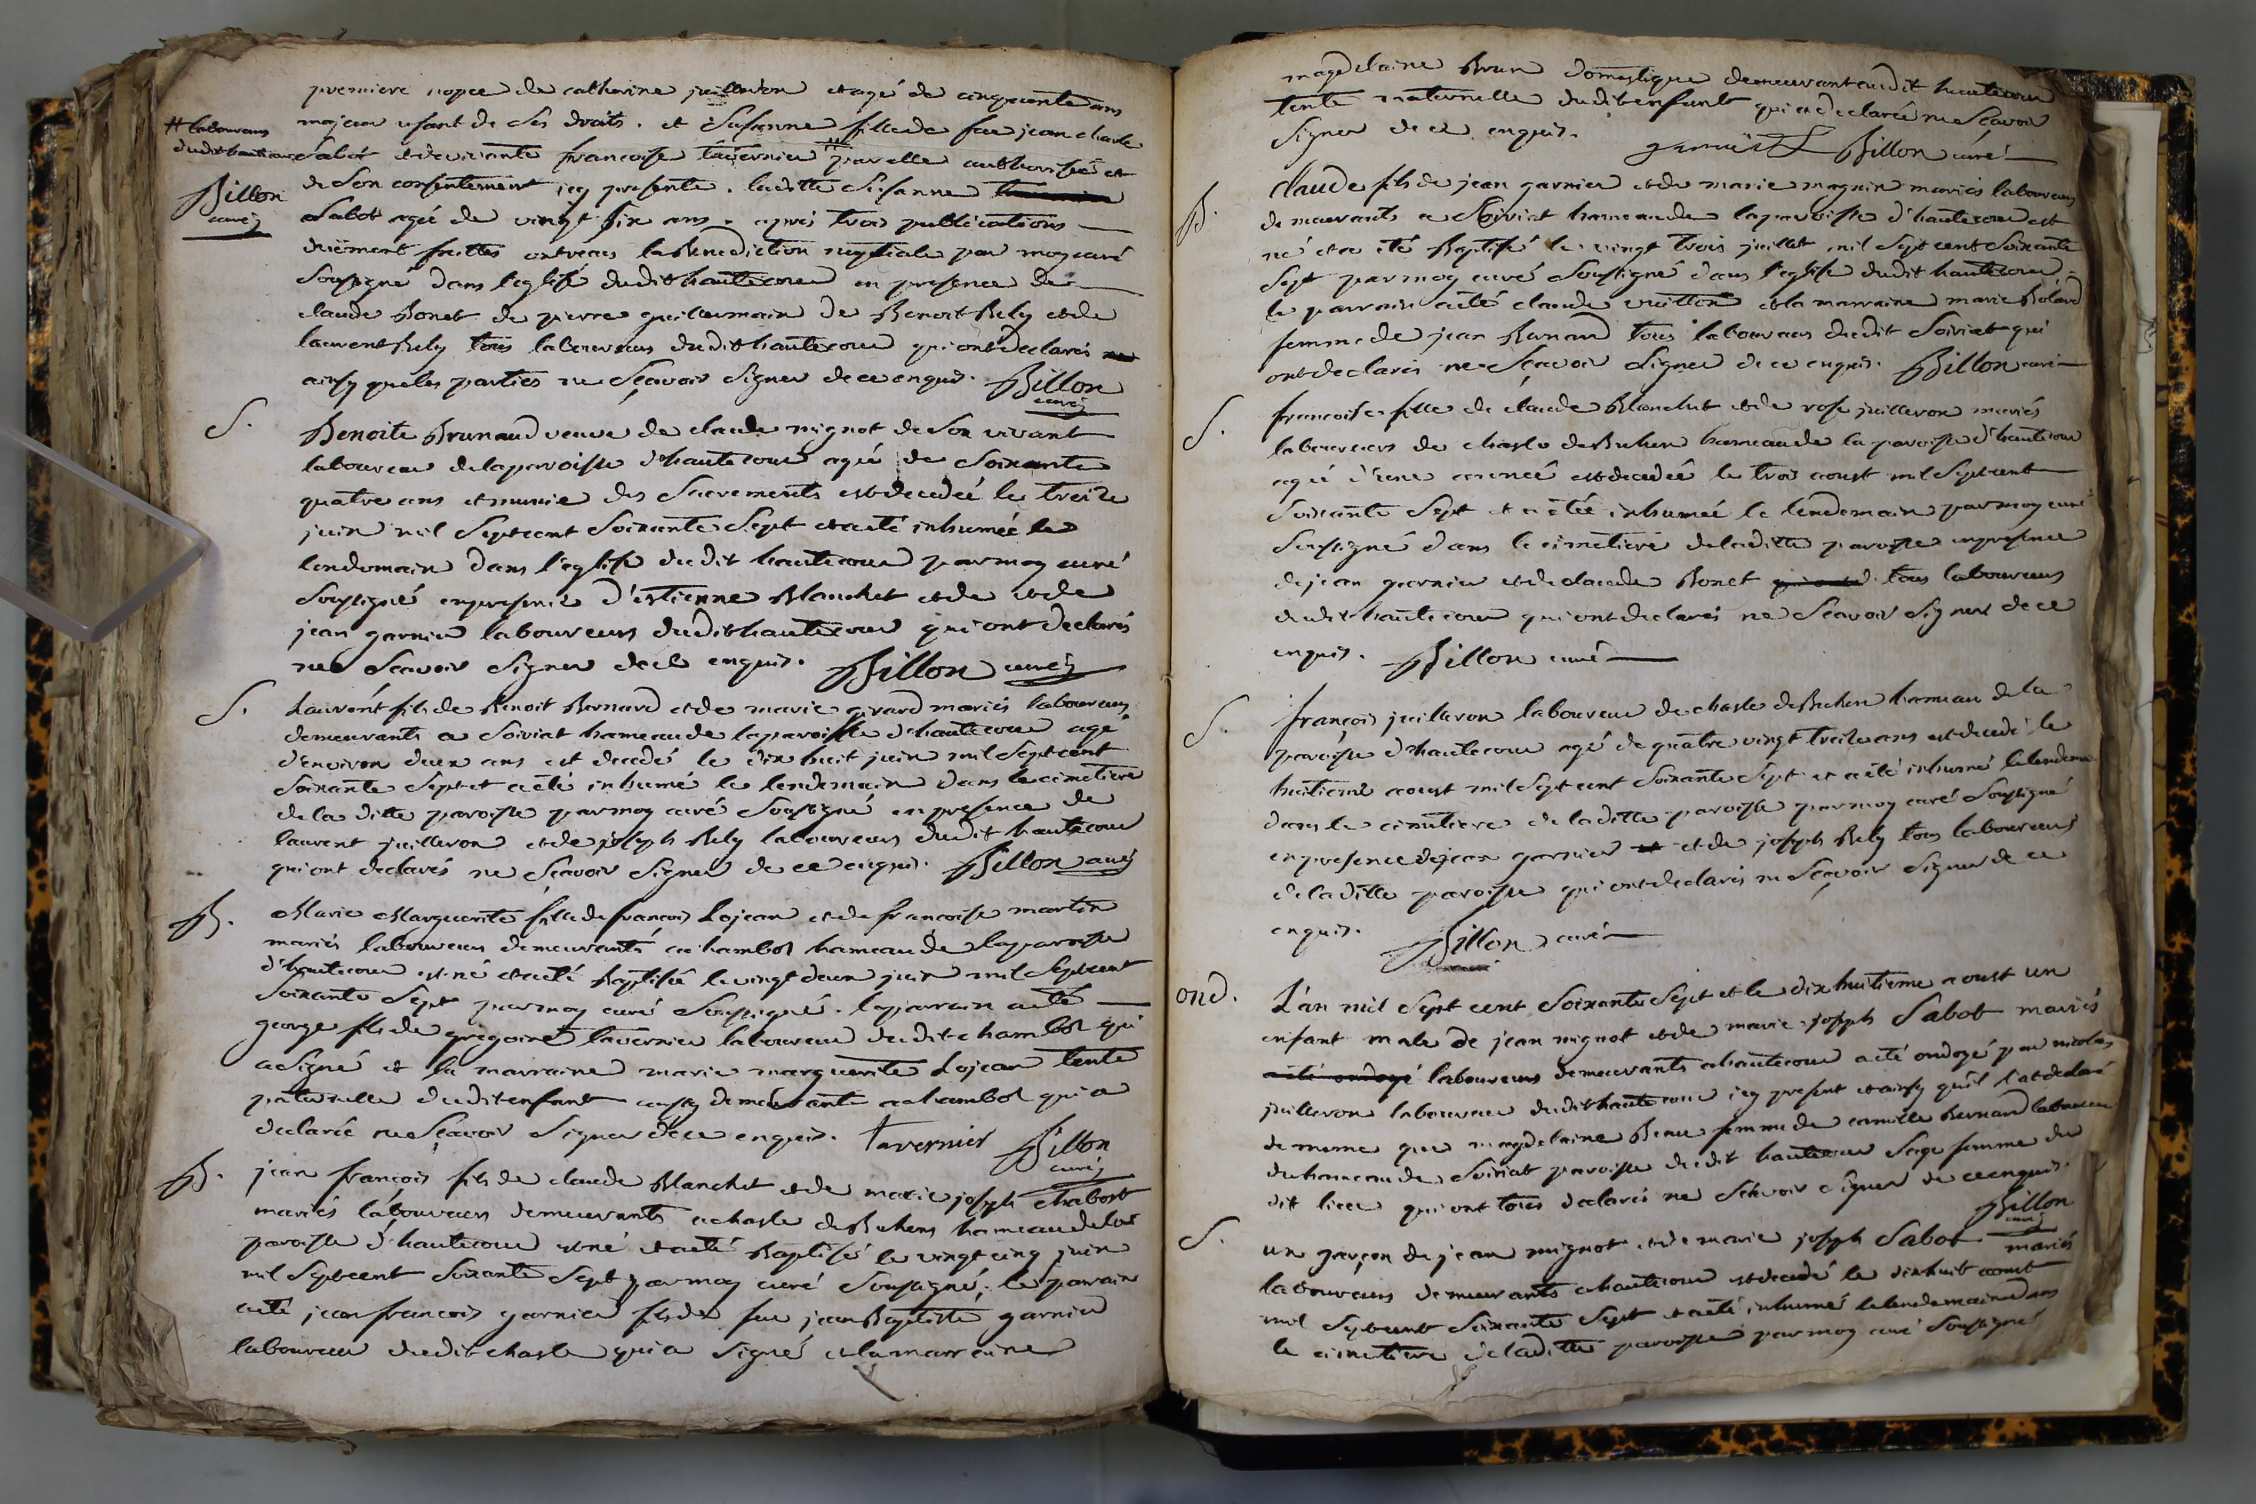 premiere nopce de catherine juilleron et agé de cinquante ans
majeur usant de ses droits. et Susanne fille de feu jean charle
# laboureurs
dudit hautecour
Sabot et de vivante francoise tavernier # par elle authorisée et
de son consentement icy presente. laditte Susanne
Billon
curé
Sabot agée de vingt six ans. aprés trois publications
duëment faittes ont reçus la Benediction nuptiale par moy curé
Soussigné dans l'eglise dudit hautecour en presence de
claude Bonet de pierre guillermain de Benoit Rely et de
laurent Rely tous laboureurs dudit hautecour qui ont declarés
ainsy que les parties ne Sçavoir Signer de ce enquis. Billon
curé
S.
Benoite Brunaud veuve de claude mignot de son vivant
laboureur de la paroisse d'hautecour agée de Soixante
quatre ans et munie des Sacrements est decedeé le treize
juin mil Sept cent Soixante Sept et a été inhumée le
lendemain dans l'eglise dudit hautecour par moy curé
Soussigné en presence d'estienne Blanchet et de et de
jean garnier laboureurs dudit hautecour qui ont declarés
ne Sçavoir Signer de ce enquis. Billon curé
S.
Laurent fils de Benoit Bernard et de marie girard mariés laboureurs
demeurants a Soiriat hameau de la paroisse d'hautecour agé
d'environ deux ans est decedé le dix huit juin mil Sept cent
Soixante Sept et a été inhumé le lendemain dans le cimetiere
de la ditte paroisse par moy curé Soussigné en presence de
laurent juilleron et de joseph Rely laboureurs dudit hautecour
qui ont declarés ne Sçavoir Signer de ce enquis. Billon curé
B.
Marie Marguerite fille de françois Lojean et de francoise martin
mariés laboureurs demeurants a chambod hameau de la paroisse
d'hautecour est né et a été Baptisée le vingt deux juin mil Sept cent
Soixante Sept par moy curé Soussigné. le parrain a été
george fils de gregoire tavernier laboureur dudit chambod qui
a Signé et la marraine marie marguerite Lojean tente
paternelle dudit enfant aussy demeurante a chambod qui a
declarée ne Sçavoir Signer de ce enquis. Tavernier Billon
curé
B.
jean françois fils de claude Blanchet et de marie joseph chabost
mariés laboureurs demeurants a chasle de Buhens hameau de la
paroisse d'hautecour est né et a été Baptisé le vingt cinq juin
mil Sept cent Soixante Sept par moy curé Soussigné; le parrain
a été jean francois garnier fils de feu jean Baptiste garnier
laboureur dudit chasle qui a Signé et la marraine
magdelaine Brun domestique demeurant audit hautecour
tente maternelle dudit enfant qui a declarée ne Sçavoir
Signer de ce enquis.
garnier Billon curé
B.
Claude fils de jean garnier et de marie magnin mariés laboureurs
demeurants a Soiriat hameau de la paroisse d'hautecour est
né et a été Baptisé le vingt trois juillet mil Sept cent Soixante
Sept par moy curé Soussigné dans l'eglise dudit hautecour.
le parrain a été claude vuitton et la marraine marie
femme de jean Bernard tous laboureurs dudit Soiriat qui
ont declarés ne Sçavoir Signer de ce enquis. Billon curé
S.
francoise fille de claude Blanchet et de rose juilleron mariés
laboureurs de chasle de Buhen hameau de la paroisse d'hautecour
agée d'une année est decedeé le trois aoust mil Sept cent
Soixante Sept et a étée inhumée le lendemain par moy curé
Soussigné dans le cimetiere de laditte paroisse en presence
de jean garnier et de claude Bonet tous laboureurs
dudit hautecour qui ont declarés ne Sçavoir Signer de ce
enquis. Billon curé
S.
françois juilleron laboureur de chasle de Buhen hameau de la
paroisse d'hautecour agé de quatre vingt treize ans est decedé le
huitieme aoust mil Sept cent Soixante Sept et a été inhumé le lendemain
dans le cimetiere de laditte paroisse par moy curé Soussigné
en presence de jean garnier et de joseph Rely tous laboureurs
de laditte paroisse qui ont declarés ne Sçavoir Signer de ce
enquis.
Billon curé
ond.
L'an mil Sept cent Soixante Sept et le dix huitieme aoust un
enfant male de jean mignot et de marie joseph Sabot mariés
a été ondoyé laboureurs demeurants a hautecour a été ondoyé par nicolas
juilleron laboureur dudit hautecour icy present et ainsy qu'il l'at declaré
de meme que magdelaine Beau femme de camille Bernard laboureur
du hameau de Soiriat paroisse dudit hautecour Sage femme du
dit lieu qui ont tous declarés ne Scavoir Signer de ce enquis.
Billon
curé
S.
un garçon de jean mignot et de marie joseph Sabot mariés
laboureurs demeurants a hautecour est decedé le dix huit aoust
mil Sept cent Soixante Sept et a été inhumé le lendemain dans
le cimetiere de laditte paroisse par moy curé Soussigné